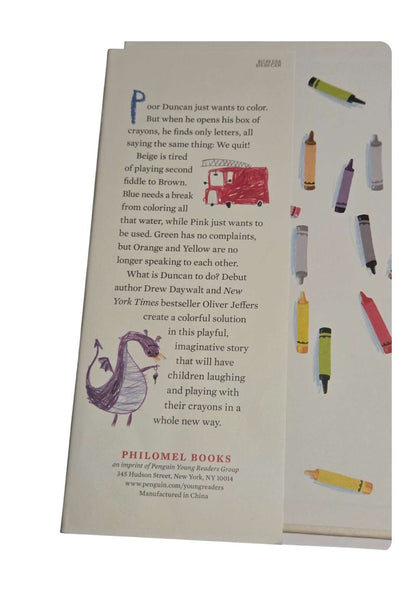 Poor Duncan just wants to color.
But when he opens his box of
crayons, he finds only letters, all
saying the same thing: We quit!
Beige is tired
of playing second
fiddle to Brown.
Blue needs a break
from coloring all
that water, while Pink just wants to
be used. Green has no complaints,
but Orange and Yellow are no
longer speaking to each other.
What is Duncan to do? Debut
author Drew Daywalt and New
York Times bestseller Oliver Jeffers
create a colorful solution
in this playful,
imaginative story
that will have
children laughing
and playing with
their crayons in a
whole new way.
PHILOMEL BOOKS
an imprint of Penguin Young Readers Group
345 Hudson Street, New York, NY 10014
www.penguin.com/youngreaders
Manufactured in China